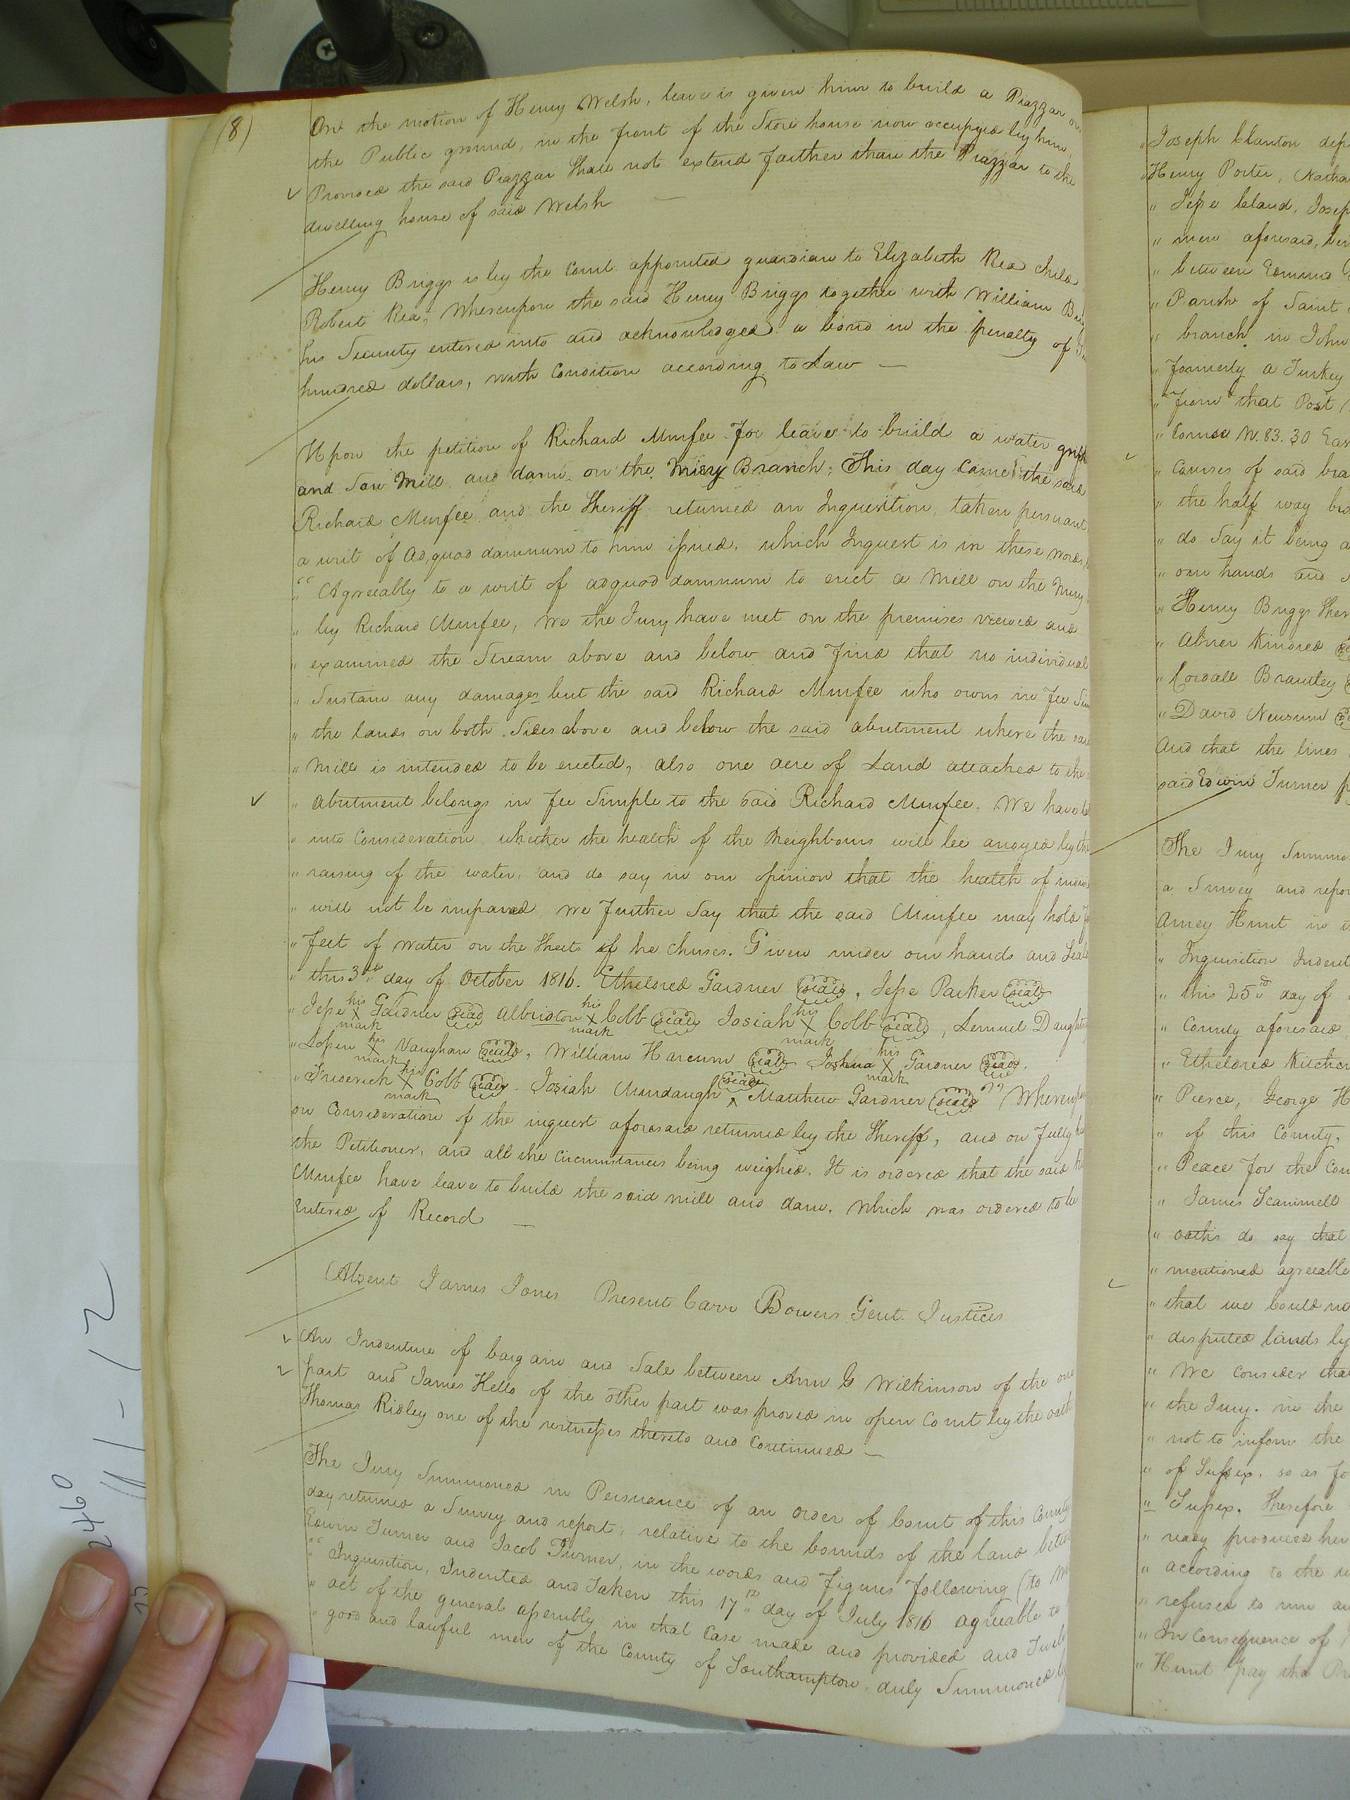 (8)
On the motion of Henry Welsh, leave is given him to build a Piazzar on
the Public ground, in the front of the Store house now occupied by him,
Provided the said Piazzar shall not extend farther than the Piazzar to the
dwelling house of said Welsh —
Henry Briggs is by the Court appointed guardian to Elizabeth Rea child
Robert Rea, Whereupon the said Henry Briggs together with William
his Security entered into and acknowledged a bond in the penalty of
hundred dollars, with Condition according to Law —
Upon the petition of Richard Murfee for leave to build a water grist
and Saw Mill and dam, on the Miry Branch; This day came the said
Richard Murfee and the Sheriff returned an Inquisition, taken persuant
a writ of Ad,quod damnum to him issued, which Inquest is in these words,
"Agreeably to a writ of adquod damnum to erect a Mill on the Miry
" by Richard Murfee, We the Jury have met on the premises viewed and
" examined the Stream above and below and find that no individual
" Sustain any damages but the said Richard Murfee who owns in fee Sim
" the lands on both Sides above and below the said abutment where the said
" Mill is intended to be erected, also one acre of Land attached to the
" abutment belongs in fee Simple to the said Richard Murfee. We have
" into Consideration whether the health of the Neighbours will be anoyed by the
" raising of the water, and do say in our opinion that the health of
" will not be impared we further Say that the said Murfee may hold
" feet of water on the Sheets if he chuses. Given under our hands and Seals
" this 3rd day of October 1816. Etheldred Gardner (Seal), Jesse Parker (Seal)
" Jesse his X mark Gardner (Seal) Albriston his X mark Cobb (Seal) Josiah his X mark Cobb (Seal), Lemuel Daughtry
" his X mark Vaughan (Seal), William Harcum (Seal) Joshua his X mark Gardner (Seal),
" Frederick his X mark Cobb (Seal). Josiah Mundaugh (Seal) ^ Matthew Gardner (Seal)" Whereupon
on Consideration of the inquest aforesaid returned by the Sheriff, and on fully
the Petitioner, and all the Circumstances being weighed. It is ordered that the said
Murfee have leave to build the said mill and dam. Which was ordered to be
Entered of Record —
Absent James Jones Present Carr Bowers Gent. Justices
An Indenture of bargain and Sale between Ann G Wilkinson of the one
part and James Kello of the other part was proved in open Court by the oath
Thomas Ridley one of the witnesses thereto and Continued —
The Jury Summoned in Persuance of an order of Court of this County
day returned a Survey and report, relative to the bounds of the land between
Edwin Turner and Jacob Turner, in the words and figures following (to
" Inquisition, Indented and Taken this 17th day of July 1816 agreeable to
" act of the general assembly in that Case made and provided and Twelve
" good and lawful men of the County of Southampton duly Summoned
Joseph Clanton
"Henry Porter,
" Jesse Bland,
" men aforesaid,
" between Edmund
" Parish of Saint
" branch, in John
" formerly a Turkey
" from that Post
" Course N. 83. 30 East
" Courses of said
" the half way
" do Say it being a
" our hands and
" Henry Briggs
" Abner Kindred
" Cordall Brantley
" David Newsum
And that the lines
said Edwin Turner
The Jury
a Survey and
Amey Hunt in
" Inquisition
" this 25th day of
" County aforesaid
" Etheldred Kitchen
" Pierce, George
" of this County,
" Peace for the
" James Scammell
" oaths do say that
" mentioned agreeable
" that we could not
" disputed lands by
" We consider that
" the Jury. in the
" not to inform the
" of Sussex, so as
" Sussex. Therefore
" ready produced her
" according to the
" refused to run
" In Consequence of
" Hunt pay the
2460
11-12